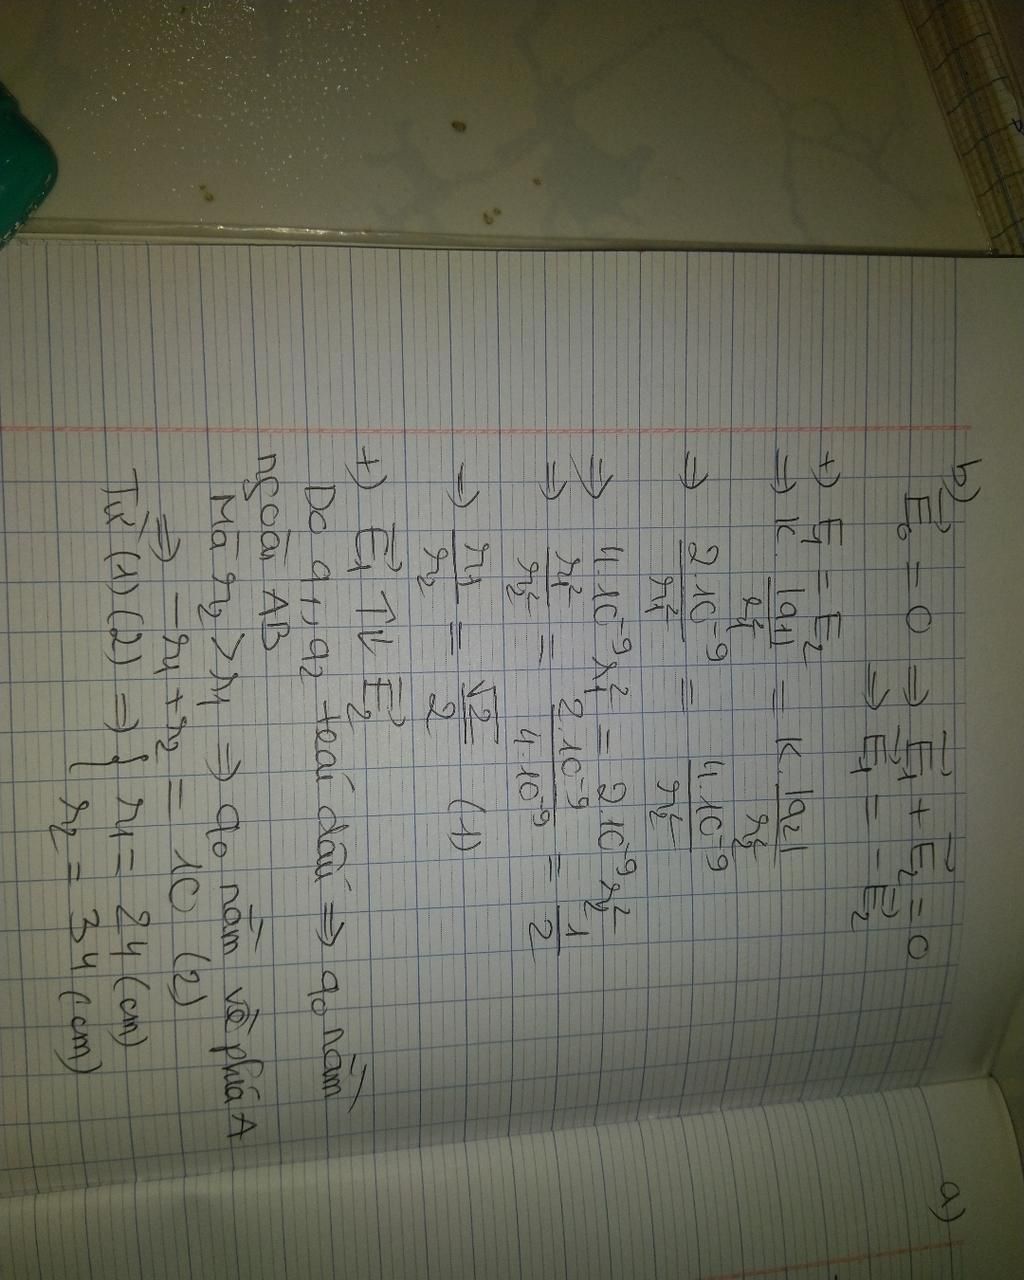 b)
E₀⃗ = 0 ⇒ E₁⃗ + E₂⃗ = 0
⇒ E₁⃗ = - E₂⃗
+) E₁ = E₂
⇒ K. |q₁|/r₁² = K. |q₂|/r₂²
⇒ 2.10⁻⁹/r₁² = 4.10⁻⁹/r₂²
⇒ 4.10⁻⁹ r₁² = 2.10⁻⁹ r₂²
⇒ r₁²/r₂² = 2.10⁻⁹/4.10⁻⁹ = 1/2
⇒ r₁/r₂ = √2/2 (1)
+) E₁⃗ ↑↓ E₂⃗
Do q₁, q₂ trái dấu ⇒ q₀ nằm
ngoài AB
Mà r₂ > r₁ ⇒ q₀ nằm về phía A
⇒ - r₁ + r₂ = 10 (2)
Từ (1) (2) ⇒ { r₁ = 24 (cm)
{ r₂ = 34 (cm)
a)